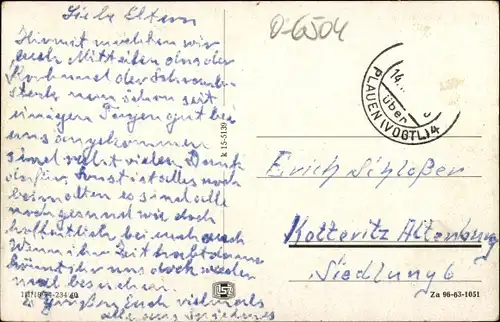 Liebe Eltern
Hiermit möchten wir
euch Mitteilen das der
Korb und der Schraub-
stock nun schon seit
einigen Tagen gut bei
uns angekommen
sind recht vielen Dank
dafür, sonst ist alles noch
beim alten es sind alle
noch gesund wie doch
hoffentlich bei euch auch
Wenn ihr Zeit habt dann
könnt ihr uns doch wieder
mal besuchen.
Es grüßen Euch vielmals
alle aus
III/18/ 234 40
k 15-5139
O-6504
14.
über
PLAUEN (VOGTL) 4
Erich Schloßer
Kotteritz Altenburg
Siedlung 6
Za 96-63-1051